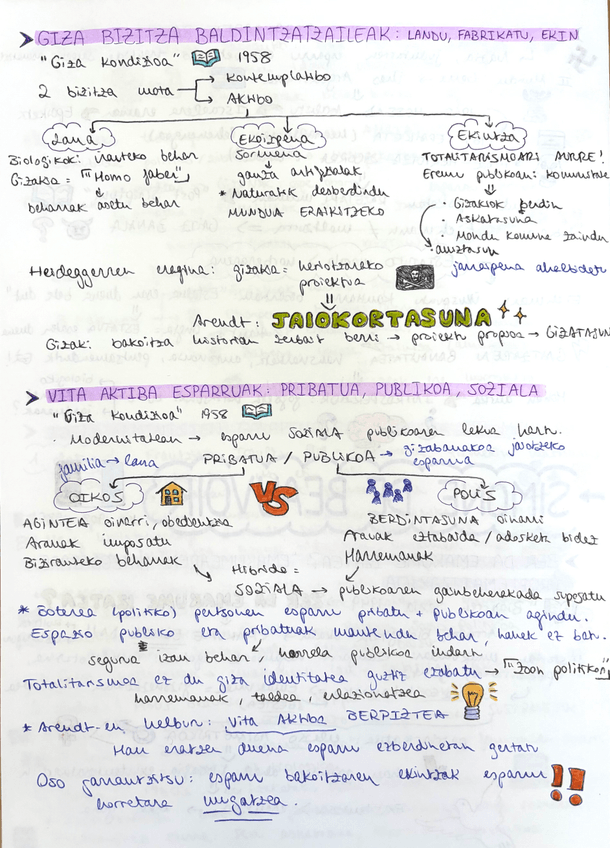 GIZA BIZITZA BALDINTZATZAILEAK: LANDU, FABRIKATU, EKIN
"Giza Kondizioa" 1958
2 bizitza mota → Kontemplatiboa
→ AKtiboa
Lana
Ekoizpena
Ekintza
Biologikoki: irauteko behar
Gizakia = "Homo faber"
beharrak asetu behar
Sormena
gauza artifizialak
* Naturatik desberdindu
MUNDUA ERAIKITZEKO
TOTALITARISMOARI AURRE!
Eremu publikoan: komunitate
· Gizakiok berdin
· Askatasuna
· Mundu komune zaindu
Heideggerren eragina: gizakia = heriotzarako proiektua
Arendt: JAIOKORTASUNA
Gizaki bakoitza historian zerbait berri → proiektu propioa → GIZATASUN
VITA AKTIBA ESPARRUAK: PRIBATUA, PUBLIKOA, SOZIALA
"Giza Kondizioa" 1958
· Modernitatean → esparru SOZIALA publikoaren lekua hartu.
familia → lana PRIBATUA / PUBLIKOA → gizabanakoa jaiotzeko esparrua
OIKOS VS POLIS
AGINTEA oinarri, obedientzia
Arauak inposatu
Bizirauteko beharrak
BERDINTASUNA oinarri
Arauak eztabaida / adosketa bidez
Harremanak
Hibrido =
SOZIALA → publikoaren gainbeherakada suposatu
* Boterea (politiko) pertsonen esparru pribatu publikoan agindu.
Espazio publiko era pribatuak mantendu behar, hauek ez bat.
segurua izan behar, horrela publikoa indartu
Totalitarismoa ez du giza identitatea guztiz ezabatu → "Zoon politikon"
harremanak, taldea, erlazionatzea
* Arendt-en helburu: vita Aktiboa BERPIZTEA
Hau eratzen duena esparru ezberdinetan gertatu
Oso garrantzitsu: esparru bakoitzaren ekintzak esparru !!
horretara mugatzea.